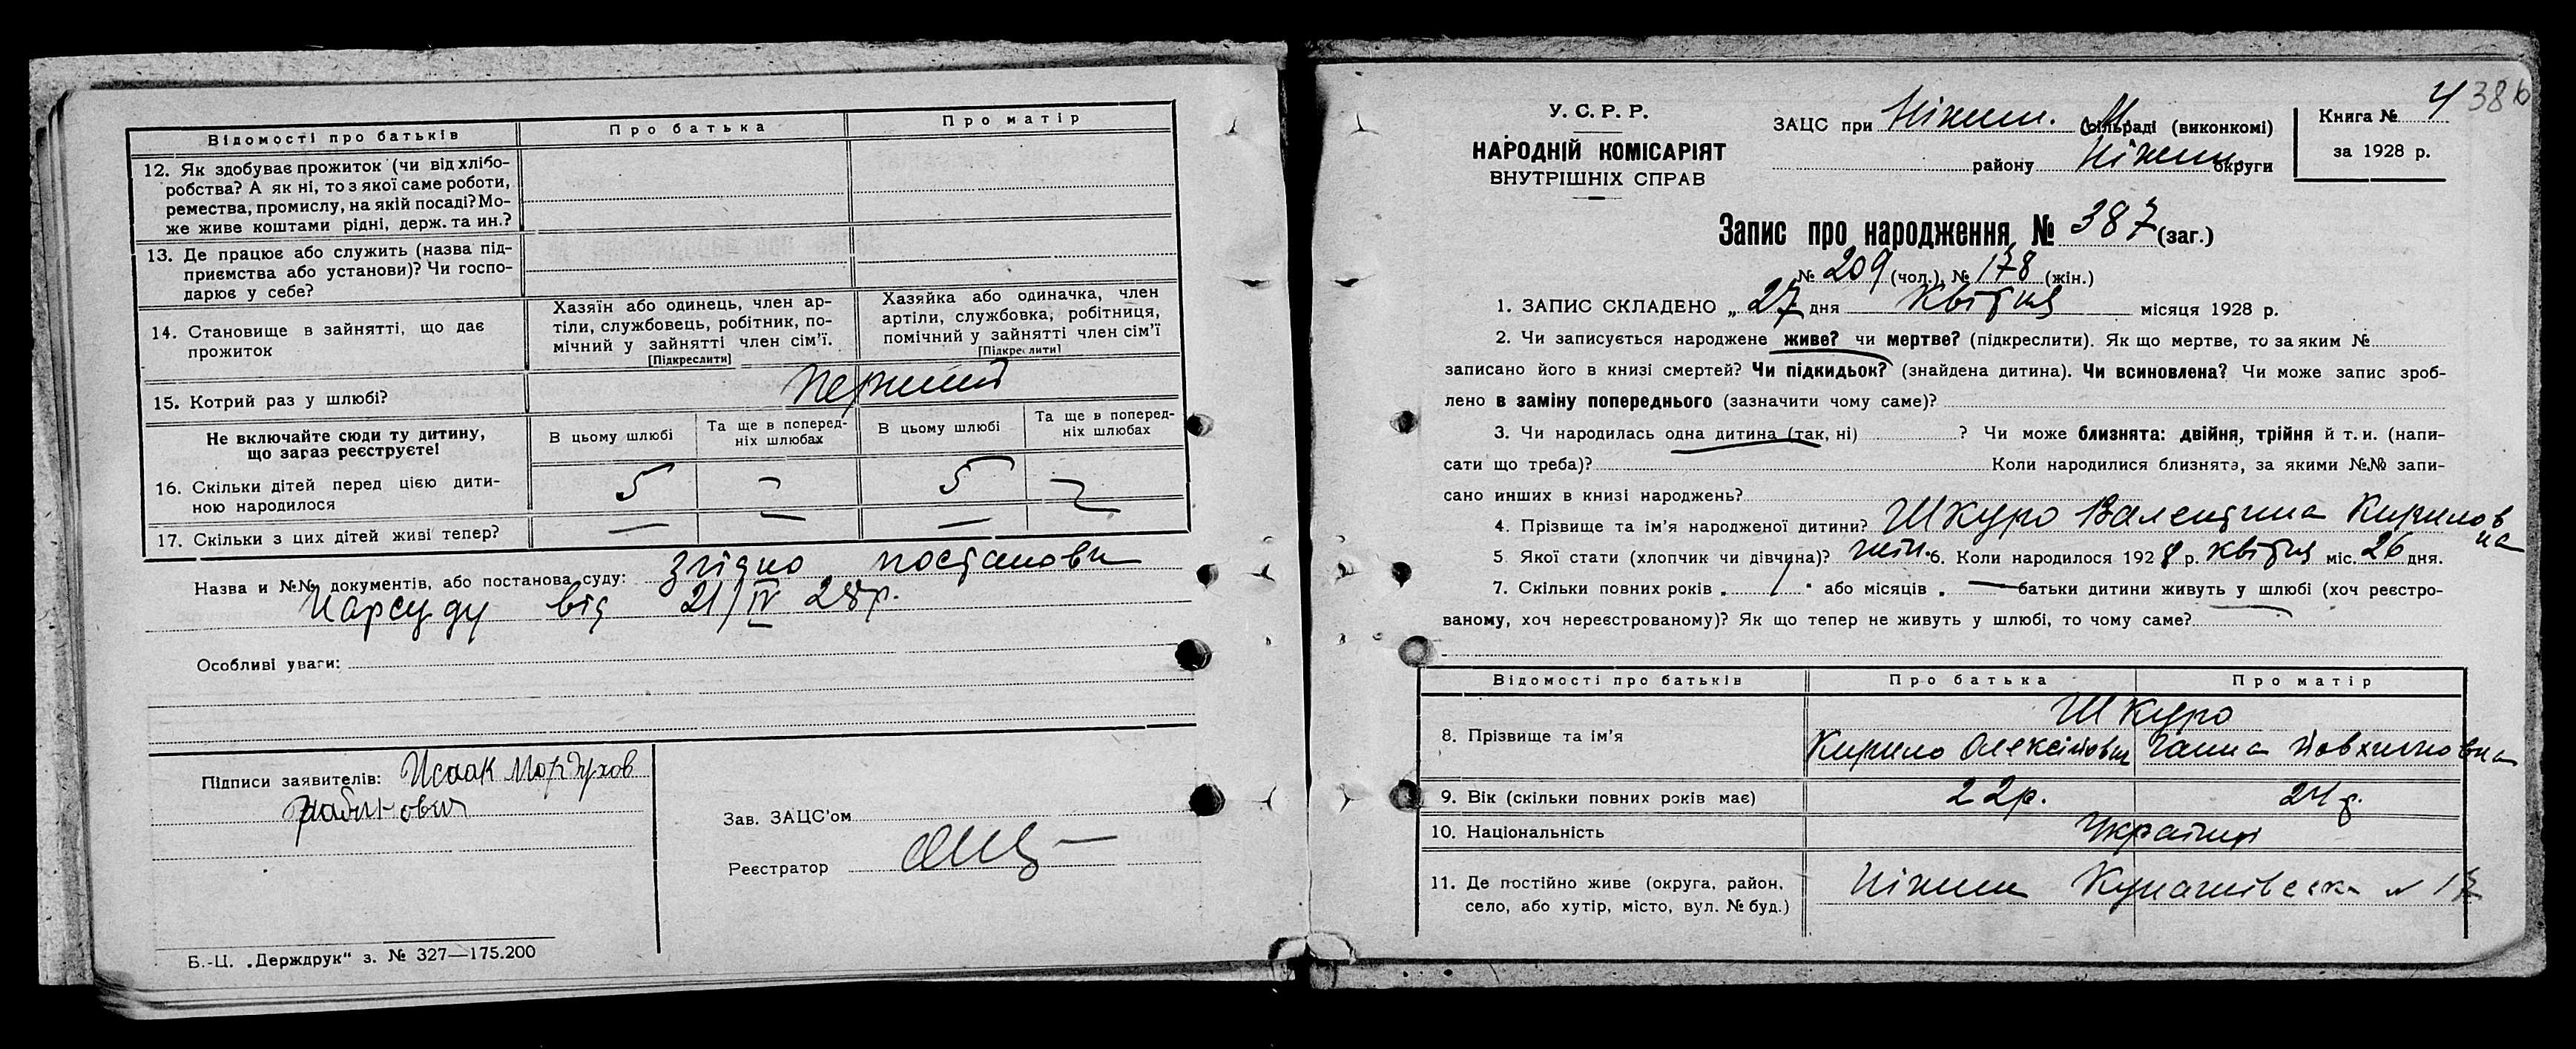 Відомості про батьків
Про батька
Про матір
12. Як здобуває прожиток (чи від хлібо-
робства? А як ні, то з якої саме роботи,
ремества, промислу, на якій посаді? Мо-
же живе коштами рідні, держ. та ин.?
13. Де працює або служить (назва під-
приємства або установи)? Чи госпо-
дарює у себе?
14. Становище в зайнятті, що дає
прожиток
Хазяїн або одинець, член ар-
тіли, службовець, робітник, по-
мічний у зайнятті член сім'ї.
[Підкреслити]
Хазяйка або одиначка, член
артіли, службовка, робітниця,
помічний у зайнятті член сім'ї
[Підкреслити]
15. Котрий раз у шлюбі?
перший
Не включайте сюди ту дитину,
що зараз реєструєте!
В цьому шлюбі
Та ще в поперед-
ніх шлюбах
В цьому шлюбі
Та ще в поперед-
ніх шлюбах
16. Скільки дітей перед цією дити-
ною народилося
5 — 5 —
17. Скільки з цих дітей живі тепер?
— — — —
Назва и №№ документів, або постанова суду: згідно постанови
Нарсуду від 21/IV 28р.
Особливі уваги:
Підписи заявителів: Исаак Мордухов
Рабинович
Зав. ЗАЦС'ом
Реєстратор
Б.-Ц. „Держдрук" з. № 327—175.200
У. С. Р. Р.
НАРОДНІЙ КОМІСАРІЯТ
ВНУТРІШНІХ СПРАВ
ЗАЦС при Ніжин. М. сільраді (виконкомі)
району Ніжин. округи
Книга № 4
за 1928 р.
386
Запис про народження № 387 (заг.)
№ 209 (чол.), № 178 (жін.)
1. ЗАПИС СКЛАДЕНО „ 27 дня Квітня місяця 1928 р.
2. Чи записується народжене живе? чи мертве? (підкреслити). Як що мертве, то за яким №
записано його в книзі смертей? Чи підкидьок? (знайдена дитина). Чи всиновлена? Чи може запис зроб-
лено в заміну попереднього (зазначити чому саме)?
3. Чи народилась одна дитина (так, ні) ? Чи може близнята: двійня, трійня й т. и. (напи-
сати що треба)? Коли народилися близнята, за якими №№ запи-
сано инших в книзі народжень?
4. Прізвище та ім'я народженої дитини? Шкуро Валентина Кирилов
на
5 Якої стати (хлопчик чи дівчина)? жін. 6. Коли народилося 1928 р. квітня міс. 26 дня.
7. Скільки повних років „ 1 " або місяців „ — батьки дитини живуть у шлюбі (хоч реєстро-
ваному, хоч нереєстрованому)? Як що тепер не живуть у шлюбі, то чому саме?
Відомості про батьків
Про батька
Про матір
8. Прізвище та ім'я
Шкуро
Кирило Олексійович
Ганна Йовхимовна
9. Вік (скільки повних років має)
22р.
24р.
10. Національність
Українці
11. Де постійно живе (округа, район,
село, або хутір, місто, вул. № буд.)
Ніжин Кунашівська № 17